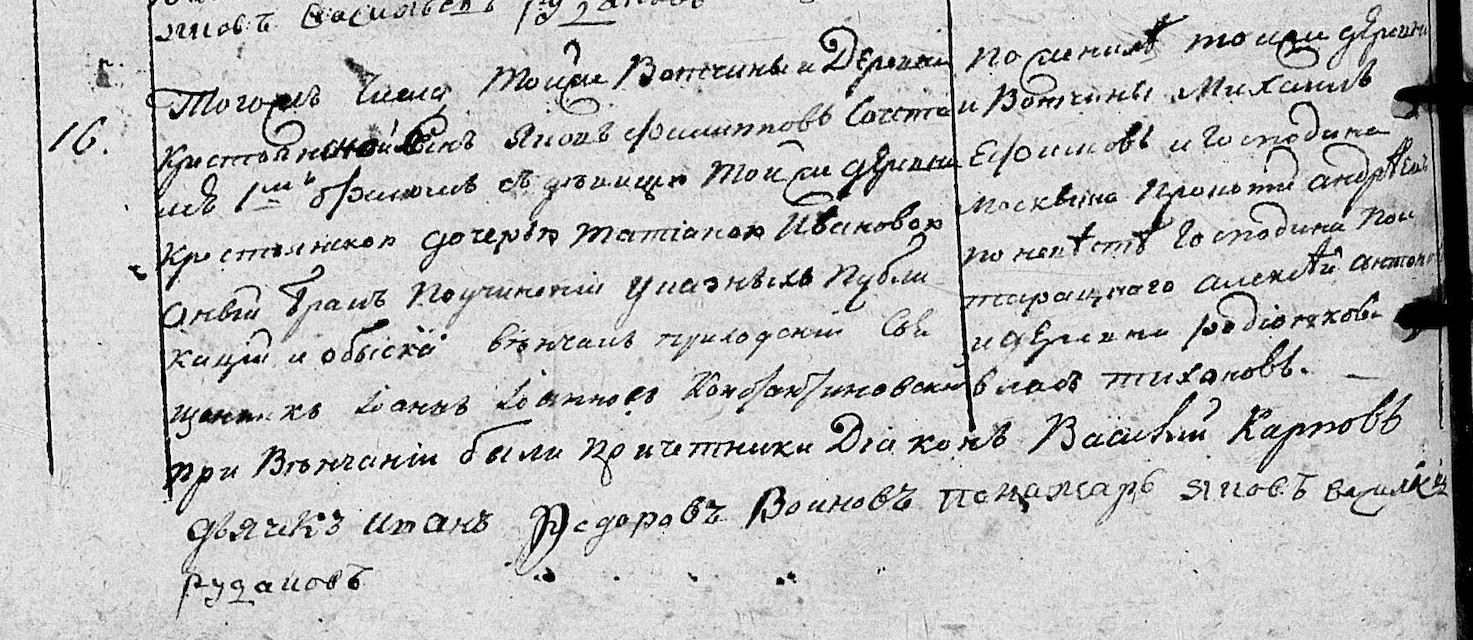 яковъ Васильевъ Рудаковъ
16.
Тогожъ числа тойже Вотчины и Деревни
Крестьянской сынъ Яковъ Филипповъ Сочета
мъ 1мъ бракомъ съ девицею тойже деревни
Крестьянскою дочерью татіаною Ивановою
Оный бракъ поучиненіи указныхъ публи
кацій и обыскѣ венчалъ приходскій Свѣ
щенникъ Іоаннъ Іоанновъ Константиновскій
по женихѣ тойже деревни
и Вотчины Михаилъ
Ефимовъ и Господина
москвина Прокофій андрѣевъ
по невѣстѣ Господина Пол
тарацкаго алексѣй антоно
и деревни родіонкова
власъ тихоновъ.
при Венчаніи были причетники Діаконъ Василій Карповъ
дьячекъ иванъ Федоровъ Воиновъ понамарь яковъ василье
рудаковъ